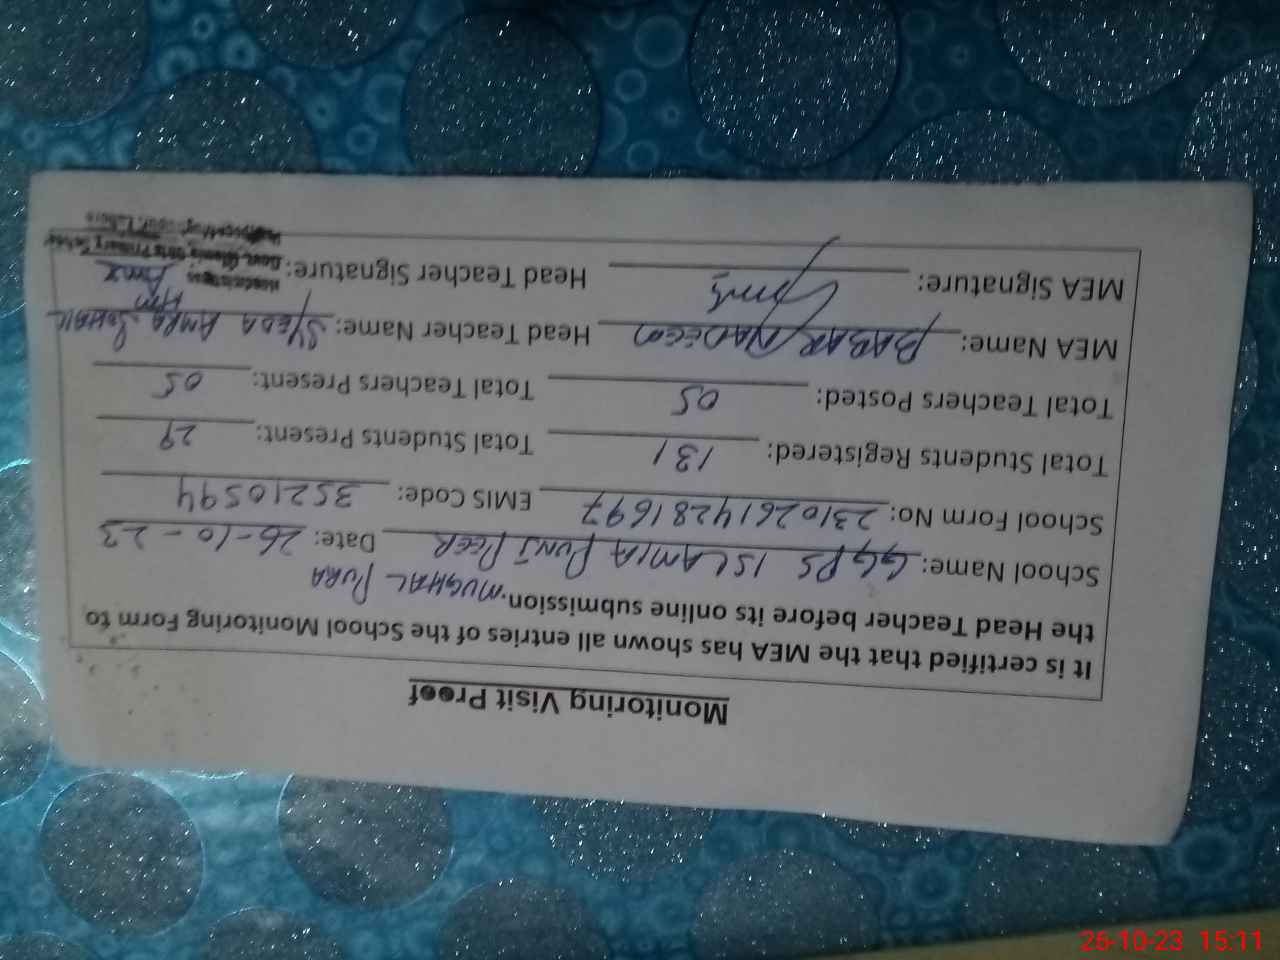 Monitoring Visit Proof
It is certified that the MEA has shown all entries of the School Monitoring Form to
the Head Teacher before its online submission. MUGHAL PURA
School Name: GGPS ISLAMIA PUNJ PEER Date: 26-10-23
School Form No: 23102614281697 EMIS Code: 35210594
Total Students Registered: 131 Total Students Present: 29
Total Teachers Posted: 05 Total Teachers Present: 05
MEA Name: BABAR NADEEM Head Teacher Name: SYEDA AMRA SOHAIL
MEA Signature: Head Teacher Signature:
Govt. Islamia Girls Primary School
26-10-23 15:11